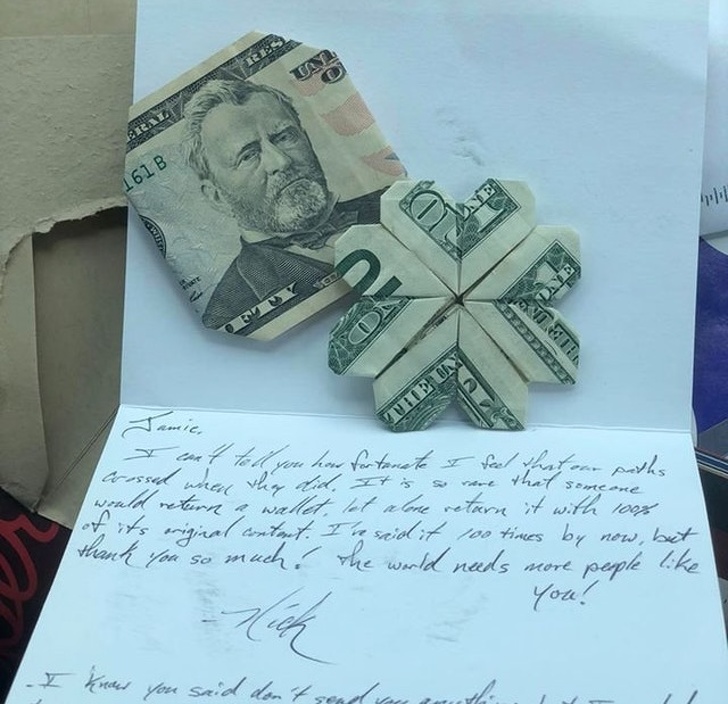 RES
UNI
O
ERAL
161 B
FIFTY
ONE
ONE
Jamie,
I can't tell you how fortunate I feel that our paths
crossed when they did. It is so rare that someone
would return a wallet, let alone return it with 100%
of its original content. I've said it 100 times by now, but
thank you so much! The world needs more people like
you!
Nick
-I know you said don't send you